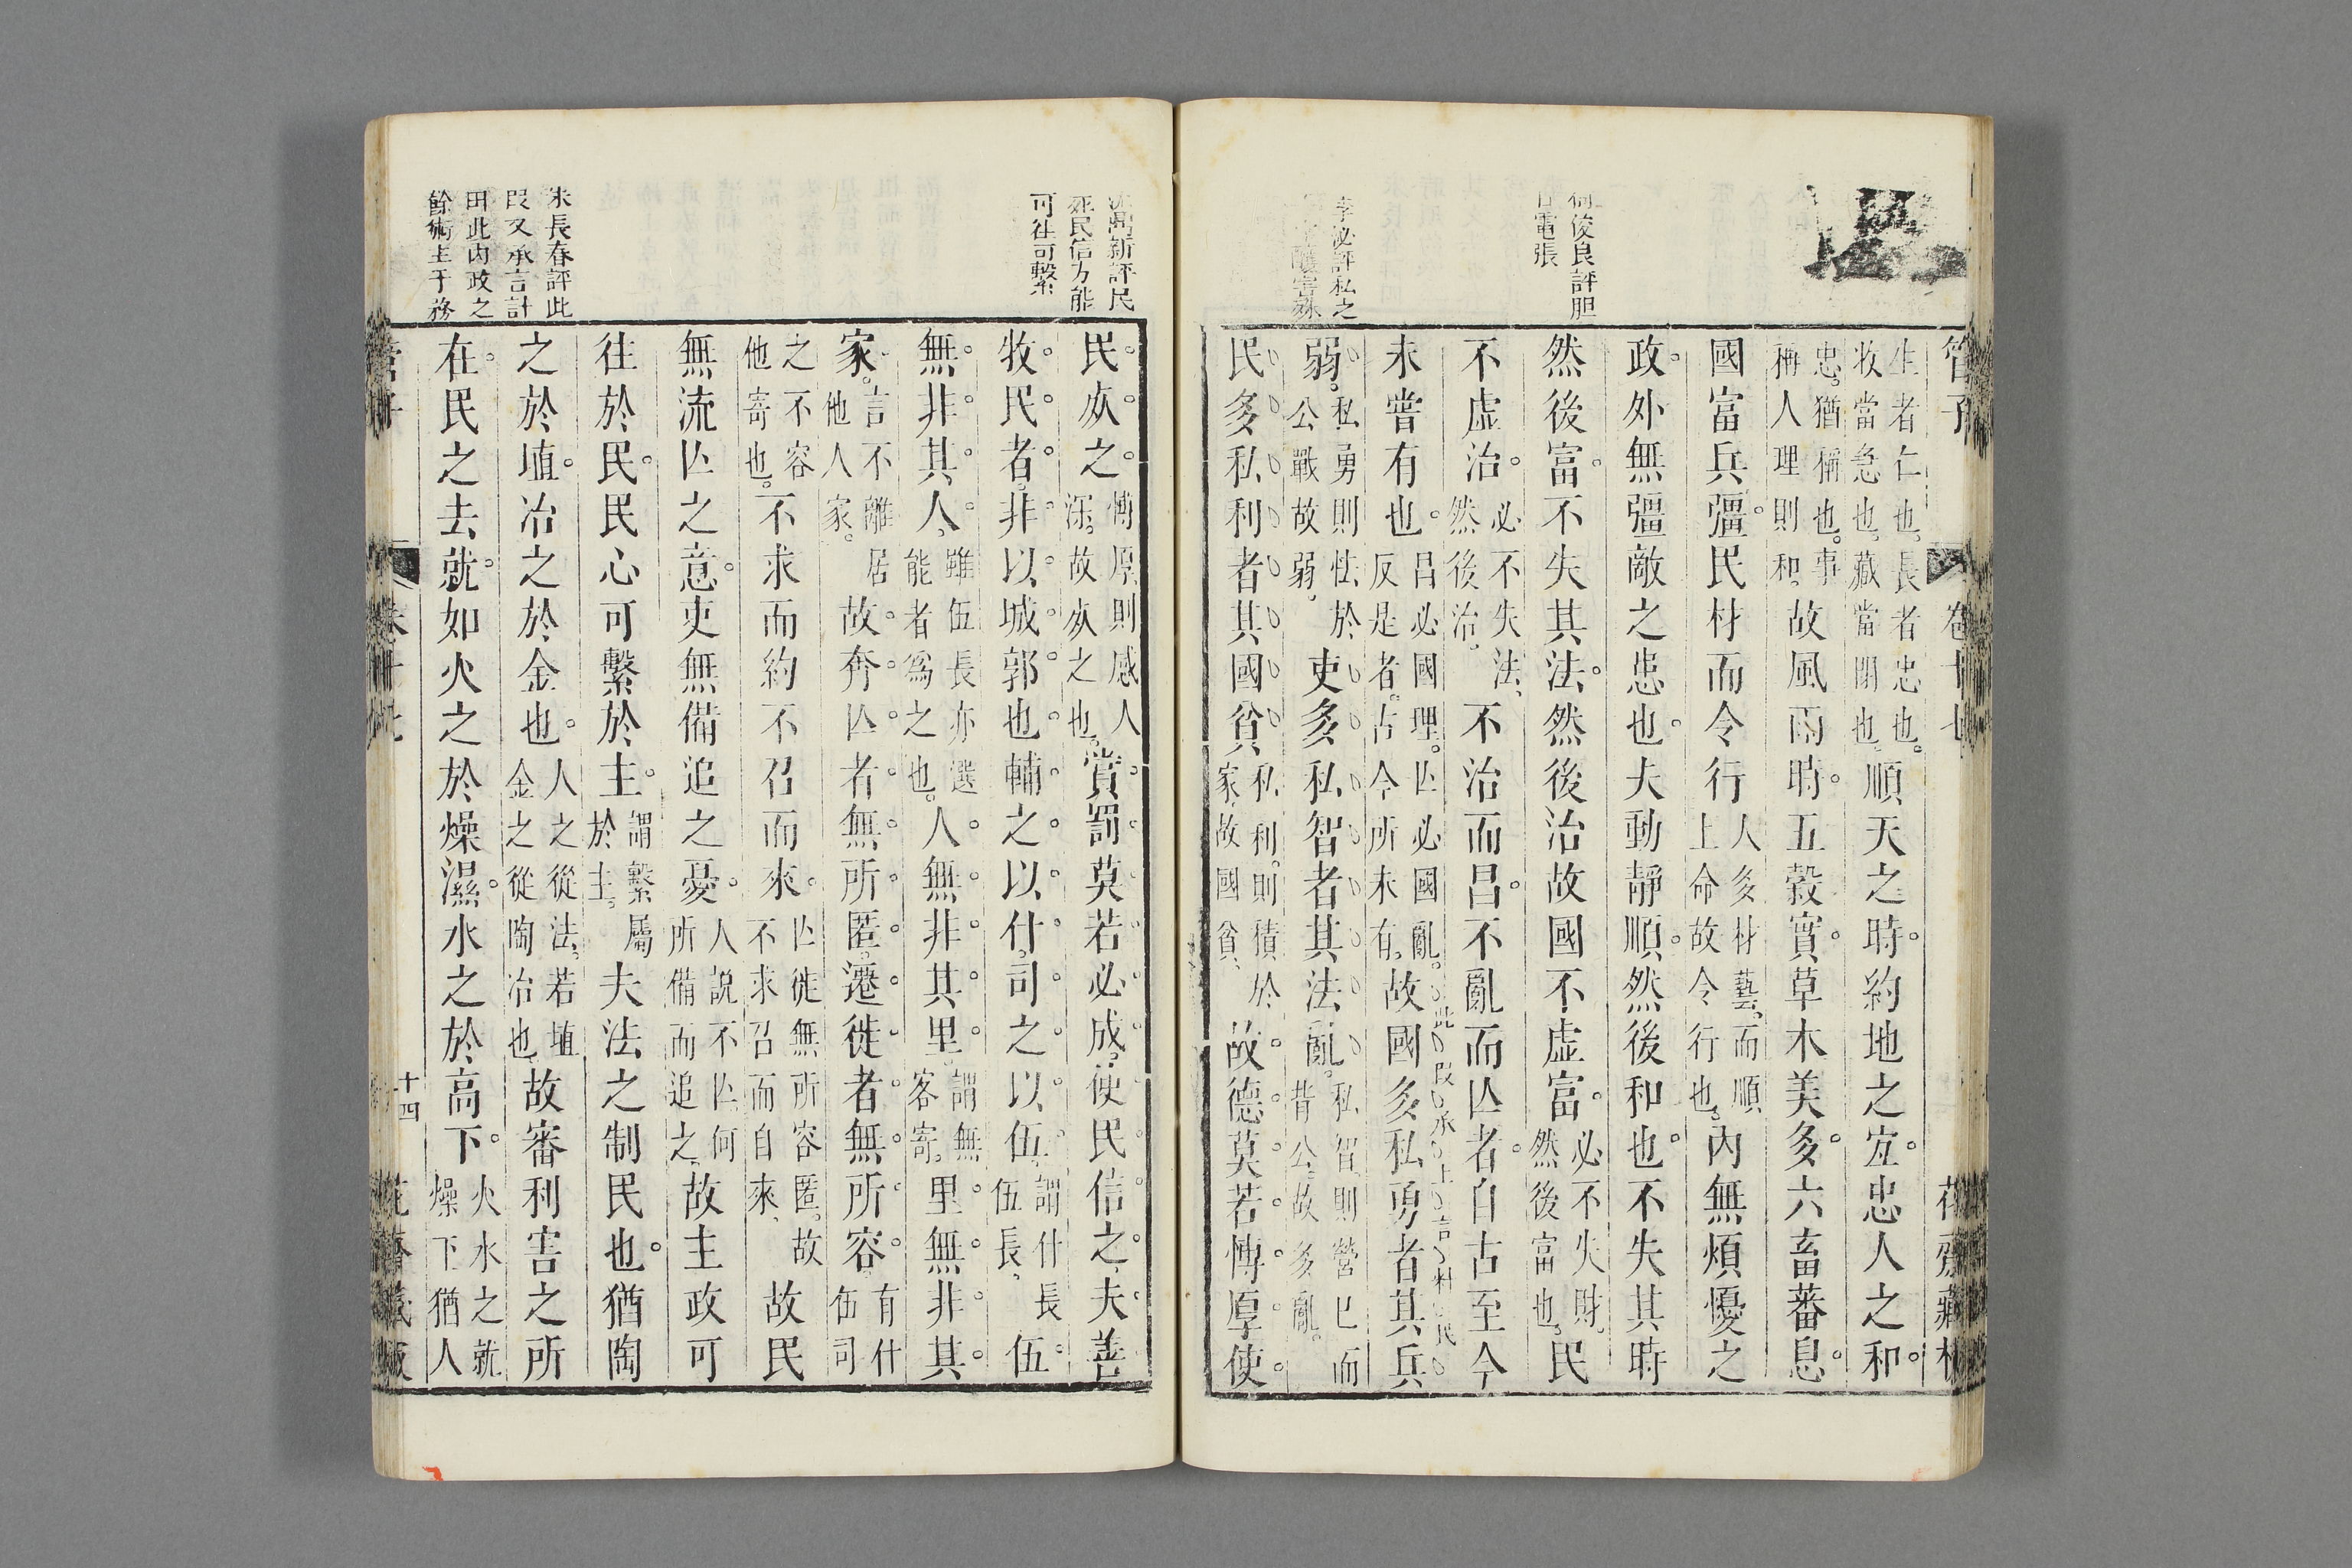 管子
卷十七
花齋藏板
何俊良評胆
電張
李泌評私之
釀害殊
生者仁也。長者忠也。
收當急也。藏當閉也。順天之時。約地之宐。忠人之和。
忠。猶稱也。事
稱人理則和。故風雨時。五穀實。草木美多。六畜蕃息。
國富兵彊。民材而令行人多材藝。而順
上命故令行也。內無煩憂之
政。外無彊敵之患也。夫動靜順。然後和也。不失其時
然後富。不失其法。然後治。故國不虛富。必不失財。
然後富也。民
不虛治。必不失法、
然後治。不治而昌。不亂而亾者。自古至今
未嘗有也。昌必國理。亾必國亂。
反是者。古今所未有。故國多私勇者其兵
此段承上言料民
弱。私勇則怯於
公戰故弱。吏多私智者其法亂。私智則營已而
背公。故多亂。
民多私利者其國貧私利。則積於
家。故國貧、故德莫若愽厚。使
民信方能
可徃可繫
朱長春評此
段又承言計
田此內政之
餘術主于務
民㱔之。愽厚則感人
深。故㱔之也。賞罰莫若必成。使民信之。夫善
牧民者。非以城郭也。輔之以什。司之以伍。謂什長
伍長、伍
無非其人。雖伍長亦選
能者爲之也。人無非其里。謂無
客寄。里無非其
家。言不離居
他人家。故奔亾者無所匿。遷徙者無所容。有什
伍司
之不容
他寄也。不求而約。不召而來。亾徙無所容匿。故
不求召而自來、故民
無流亾之意。吏無備追之憂。人說不亾。何
所備而追之、故主政可
徃於民。民心可繫於主。謂繫屬
於主。夫法之制民也。猶陶
之於埴。冶之於金也。人之從法。若埴
金之從陶冶也。故審利害之所
在。民之去就。如火之於燥濕。水之於高下。火水之就
燥下猶人
十四